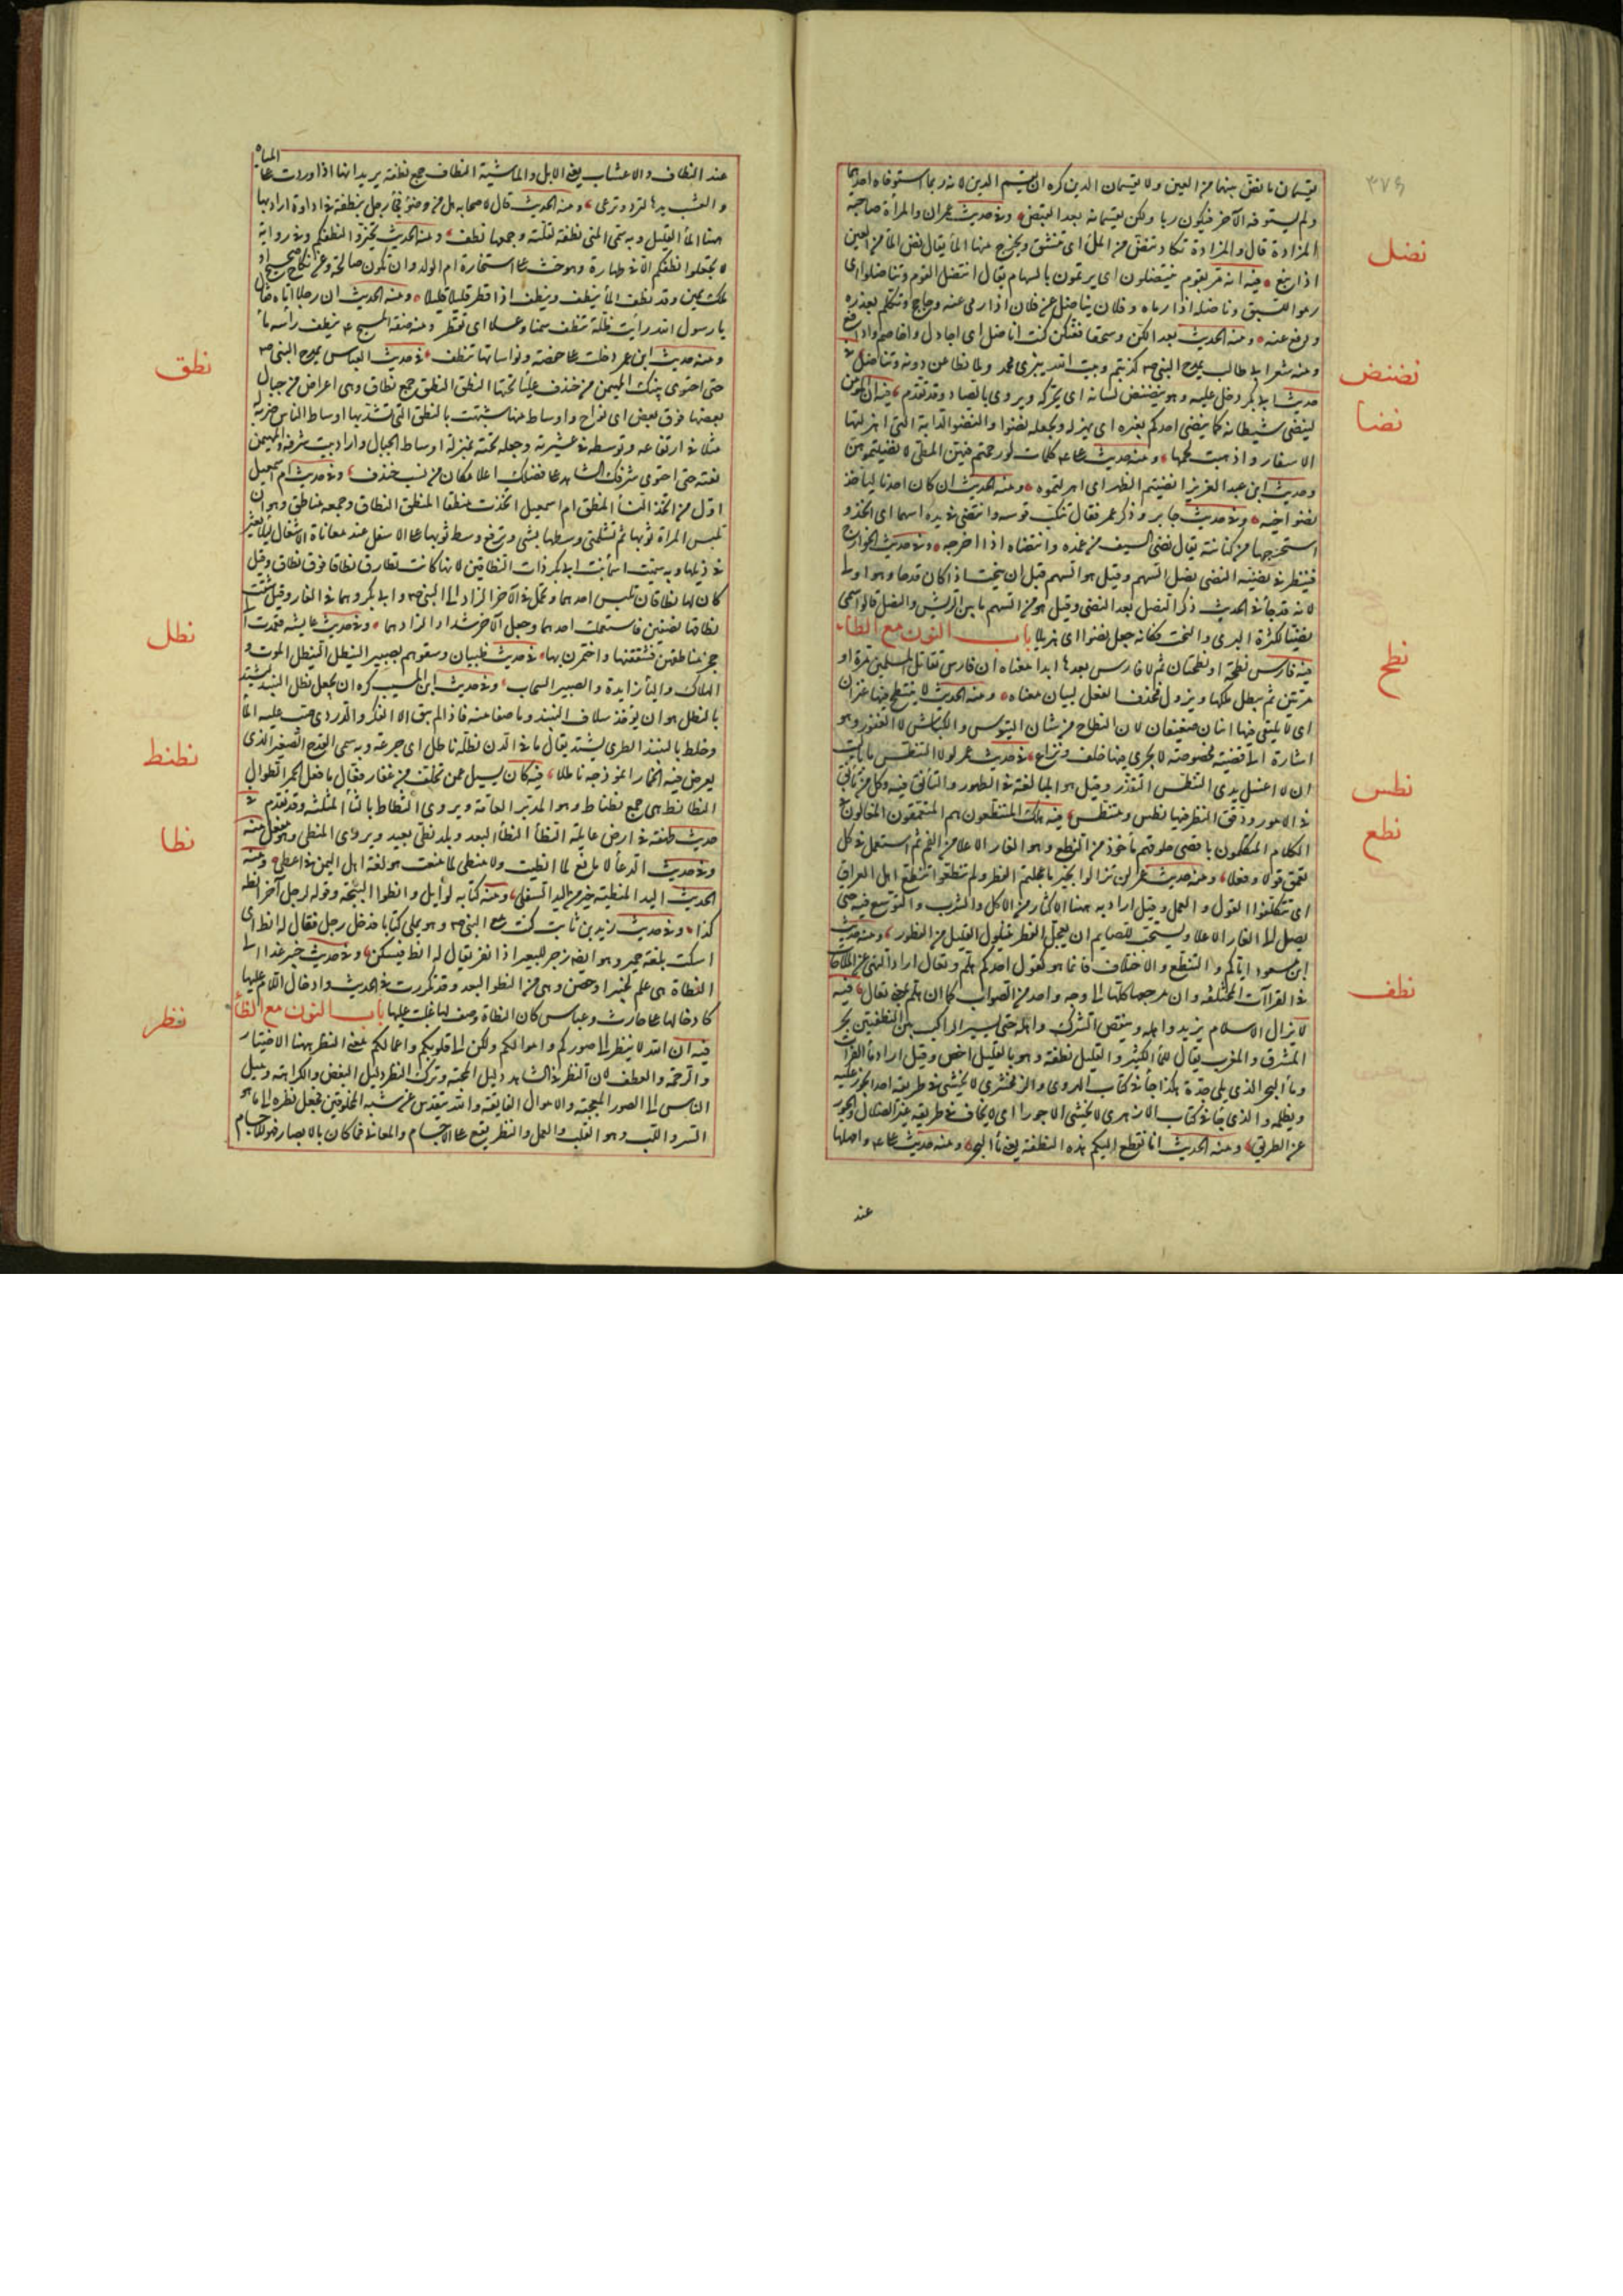 ٣٧٤
يقتسمان ما نضّ بينهما من العين ولا يقتسمان الدين كره ان يقتسم الدين لانه ربما استوفاه احدهما
ولم يستوفه الآخر فيكون ربا ولكن يقتسمانه بعد القبض وفى حديث عمران والمرأة صاحبة
المزادة قال والمزادة تكاد تنضّ من الملأ اى تنشق ويخرج منها الماء يقال نضّ الماء من العين
نضل
اذا نبع فيه انه مر بقوم ينتضلون اى يرتمون بالسهام يقال انتضل القوم وتناضلوا اى
رموا للسبق وناضله اذا راماه وفلان يناضل عن فلان اذا رمى عنه وحاجج وتكلم بعذره
ودفع عنه ومنه الحديث بعدا لكن وسحقا فعنكن كنت اناضل اى اجادل واخاصم وادافع
ومنه شعر ابى طالب يمدح النبى ص كذبتم وبيت الله يبزى محمد ولما نطاعن دونه ونناضل فى
نضنض
حديث ابى بكر دخل عليه وهو ينضنض لسانه اى يحركه ويروى بالصاد وقد تقدم فيه ان المومن
نضا
لينضى شيطانه كما ينضى احدكم بعيره اى يهزله ويجعله نضوا والنضو الدابة التى اهزلتها
الاسفار واذهبت لحمها ومنه حديث على كلمات لو رحلتم فيهن المطى لانضيتموهن
وحديث ابن عبد العزيز انضيتم الظهر اى اهزلتموه ومنه الحديث ان كان احدنا ليأخذ
نضو اخيه وفى حديث جابر وذكر عمر فقال تنكب قوسه وانتضى فى يده اسهما اى اخذ و
استخرجها من كنانته يقال نضى السيف من غمده وانتضاه اذا اخرجه وفى حديث الخوارج
فينظر فى نضيه النضى نصل السهم وقيل هو السهم قبل ان ينحت اذا كان قدحا وهو اولى
لانه قد جاء فى الحديث ذكر النصل بعد النضى وقيل هو من السهم ما بين الريش والنصل قالوا سمى
نضيا لكثرة البرى والنحت فكانه جعل نضوا اى هزيلا باب النون مع الطاء
نطح
فيه فارس نطحة او نطحتان ثم لا فارس بعدها ابدا معناه ان فارس تقاتل المسلمين مرة او
مرتين ثم يبطل ملكها ويزول فحذف الفعل لبيان معناه ومنه الحديث لا ينتطح فيها عنزان
اى لا يلتقى فيها اثنان ضعيفان لان النطاح من شان التيوس والكباش لا العنوز وهو
اشارة الى قضية مخصوصة لا يجرى فيها خلف ونزاع فى حديث عمر لولا التنطس ما باليت
نطس
ان لا اغسل يدى التنطس التقذر وقيل هو المبالغة فى الطهور والتأنق فيه وكل من تأنق
فى الامور ودقق النظر فيها نطس ومتنطس فيه هلك المتنطعون هم المتعمقون المغالون فى
نطع
الكلام المتكلمون باقصى حلوقهم مأخوذ من النطع وهو الغار الاعلا من الفم ثم استعمل فى كل
تعمق قولا وفعلا ومنه حديث عمر لن تزالوا بخير ما عجلتم الفطر ولم تنطعوا تنطع اهل العراق
اى تتكلفوا القول والعمل وقيل اراد به ههنا الاكثار من الاكل والشرب والتوسع فيه حتى
يصل الى الغار الاعلا ويستحب للصايم ان يعجل الفطر بتناول القليل من الفطور ومنه حديث
ابن مسعود اياكم والتنطع والاختلاف فانما هو كقول احدكم هلم وتعال اراد النهى عن الملاحاة
نطف
فى القراآت المختلفة وان مرجعها كلها الى وجه واحد من الصواب كما ان هلم بمعنى تعال فيه
لا يزال الاسلام يزيد واهله وينقص الشرك واهله حتى يسير الراكب بين النطفتين بحر
المشرق والمغرب يقال للماء الكثير والقليل نطفة وهو بالقليل اخص وقيل اراد ماء الفرات
وماء البحر الذى يلى جدة هكذا جاء فى كتاب الهروى والزمخشرى لا يخشى فى طريقه احدا يجور عليه
ويظلمه والذى جاء فى كتاب الازهرى لا يخشى الا جورا اى لا يخاف فى طريقه غير الضلال والجور
عن الطريق ومنه الحديث انا نقطع اليكم هذه النطفة يعنى ماء البحر ومنه حديث على وامهلها
عند
عند النطاف والاعشاب يعنى الابل والماشية النطاف جمع نطفة يريد انها اذا وردت على المياه
والعشب يدعها لترد وترعى ومنه الحديث قال لاصحابه هل من وضوء فجاء رجل بنطفة فى اداوة اراد بها
ههنا الماء القليل وبه سمى المنى نطفة لقلته وجمعها نطف ومنه الحديث تخيروا لنطفكم وفى رواية
لا تجعلوا نطفكم الا فى طهارة وهو حث على استخارة ام الولد وان تكون صالحة وعن نكاح صحيح او
ملك يمين وقد نطف الماء ينطف وينطف اذا قطر قليلا قليلا ومنه الحديث ان رجلا اتاه فقال
يا رسول الله رأيت ظلة تنطف سمنا وعسلا اى تقطر ومنه صفة المسيح ع ينطف رأسه ماء
نطق
ومنه حديث ابن عمر دخلت على حفصة ونواساتها تنطف فى حديث العباس يمدح النبى ص
حتى احتوى بيتك المهيمن من خندف علياء تحتها النطق النطق جمع نطاق وهى اعراض من جبال
بعضها فوق بعض اى نواح واوساط منها شبهت بالنطق التى تشد بها اوساط الناس ضربه
مثلا فى ارتفاعه وتوسطه فى عشيرته وجعله تحته بمنزلة اوساط الجبال واراد ببيته شرفه والمهيمن
نعته حتى احتوى شرفك الشاهد على فضلك اعلا مكان من نسب خندف وفى حديث ام اسمعيل
اول من اتخذ النساء المنطق ام اسمعيل اتخذت منطقا المنطق النطاق وجمعه مناطق وهو ان
تلبس المرأة ثوبها ثم تشد وسطها بشئ وترفع وسط ثوبها على الاسفل عند معاناة الاشغال ليلا تعثر
فى ذيلها وبه سميت اسماء بنت ابى بكر ذات النطاقين لانها كانت تطارق نطاقا فوق نطاق وقيل
كان لها نطاقان تلبس احدهما وتحمل فى الآخر الزاد الى النبى ص وابى بكر وهما فى الغار وقيل شقت
نطاقها نصفين فاستعملت احدهما وجعلت الآخر شدادا لزادهما وفى حديث عايشة فعمدت الى
نطل
حجز مناطقهن فشققنها واختمرن بها فى حديث ظبيان وسقوهم بصبير النيطل النيطل الموت و
الهلاك والياء زايدة والصبير السحاب وفى حديث ابن المسيب كره ان يجعل نطل النبيذ ليشتد
بالنطل هو ان يؤخذ سلاف النبيذ وما صفا منه فاذا لم يبق الا العكر والدردى صب عليه الماء
وخلط بالنبيذ الطرى ليشتد يقال ما فى الدن نطلة ناطل اى جرعة وبه سمى القدح الصغير الذى
نطنط
يعرض فيه الخمار انموذجه ناطلا فيه كان يسيل عمن تخلف من غفار فقال ما فعل الحمر الطوال
النطانط هى جمع نطناط وهو المديد القامة ويروى الثطاط بالثاء المثلثة وقد تقدم فى
نطا
حديث طهفة فى ارض غايلة النطاء النطاء البعد وبلد نطى بعيد ويروى المنطى وهو مفعل منه
وفى حديث الدعاء لا مانع لما انطيت ولا منطى لما منعت هو لغة اهل اليمن فى اعطى ومنه
الحديث اليد المنطية خير من اليد السفلى ومنه كتابه لوايل وانطوا الثبجة وقوله لرجل آخر انطه
كذا وفى حديث زيد بن ثابت كنت مع النبى ص وهو يملى كتابا فدخل رجل فقال له انط اى
اسكت بلغة حمير وهو ايضا زجر للبعير اذا نفر يقال له انط فيسكن وفى حديث خيبر غدا الى
النطاة هى علم لخيبر او حصن وهى من النطو البعد وقد تكررت فى الحديث وادخال اللام عليها
كادخالها على حارث وعباس كان النطاة وصف لها غلب عليها باب النون مع الظاء
نظر
فيه ان الله لا ينظر الى صوركم واموالكم ولكن الى قلوبكم واعمالكم معنى النظر ههنا الاختيار
والرحمة والعطف لان النظر فى الشاهد دليل المحبة وترك النظر دليل البغض والكراهة وميل
الناس الى الصور المعجبة والاموال الفايقة والله يتقدس عن شبه المخلوقين فجعل نظره الى ما هو
السر واللب وهو القلب والعمل والنظر يقع على الاجسام والمعانى فما كان بالابصار فهو للاجسام